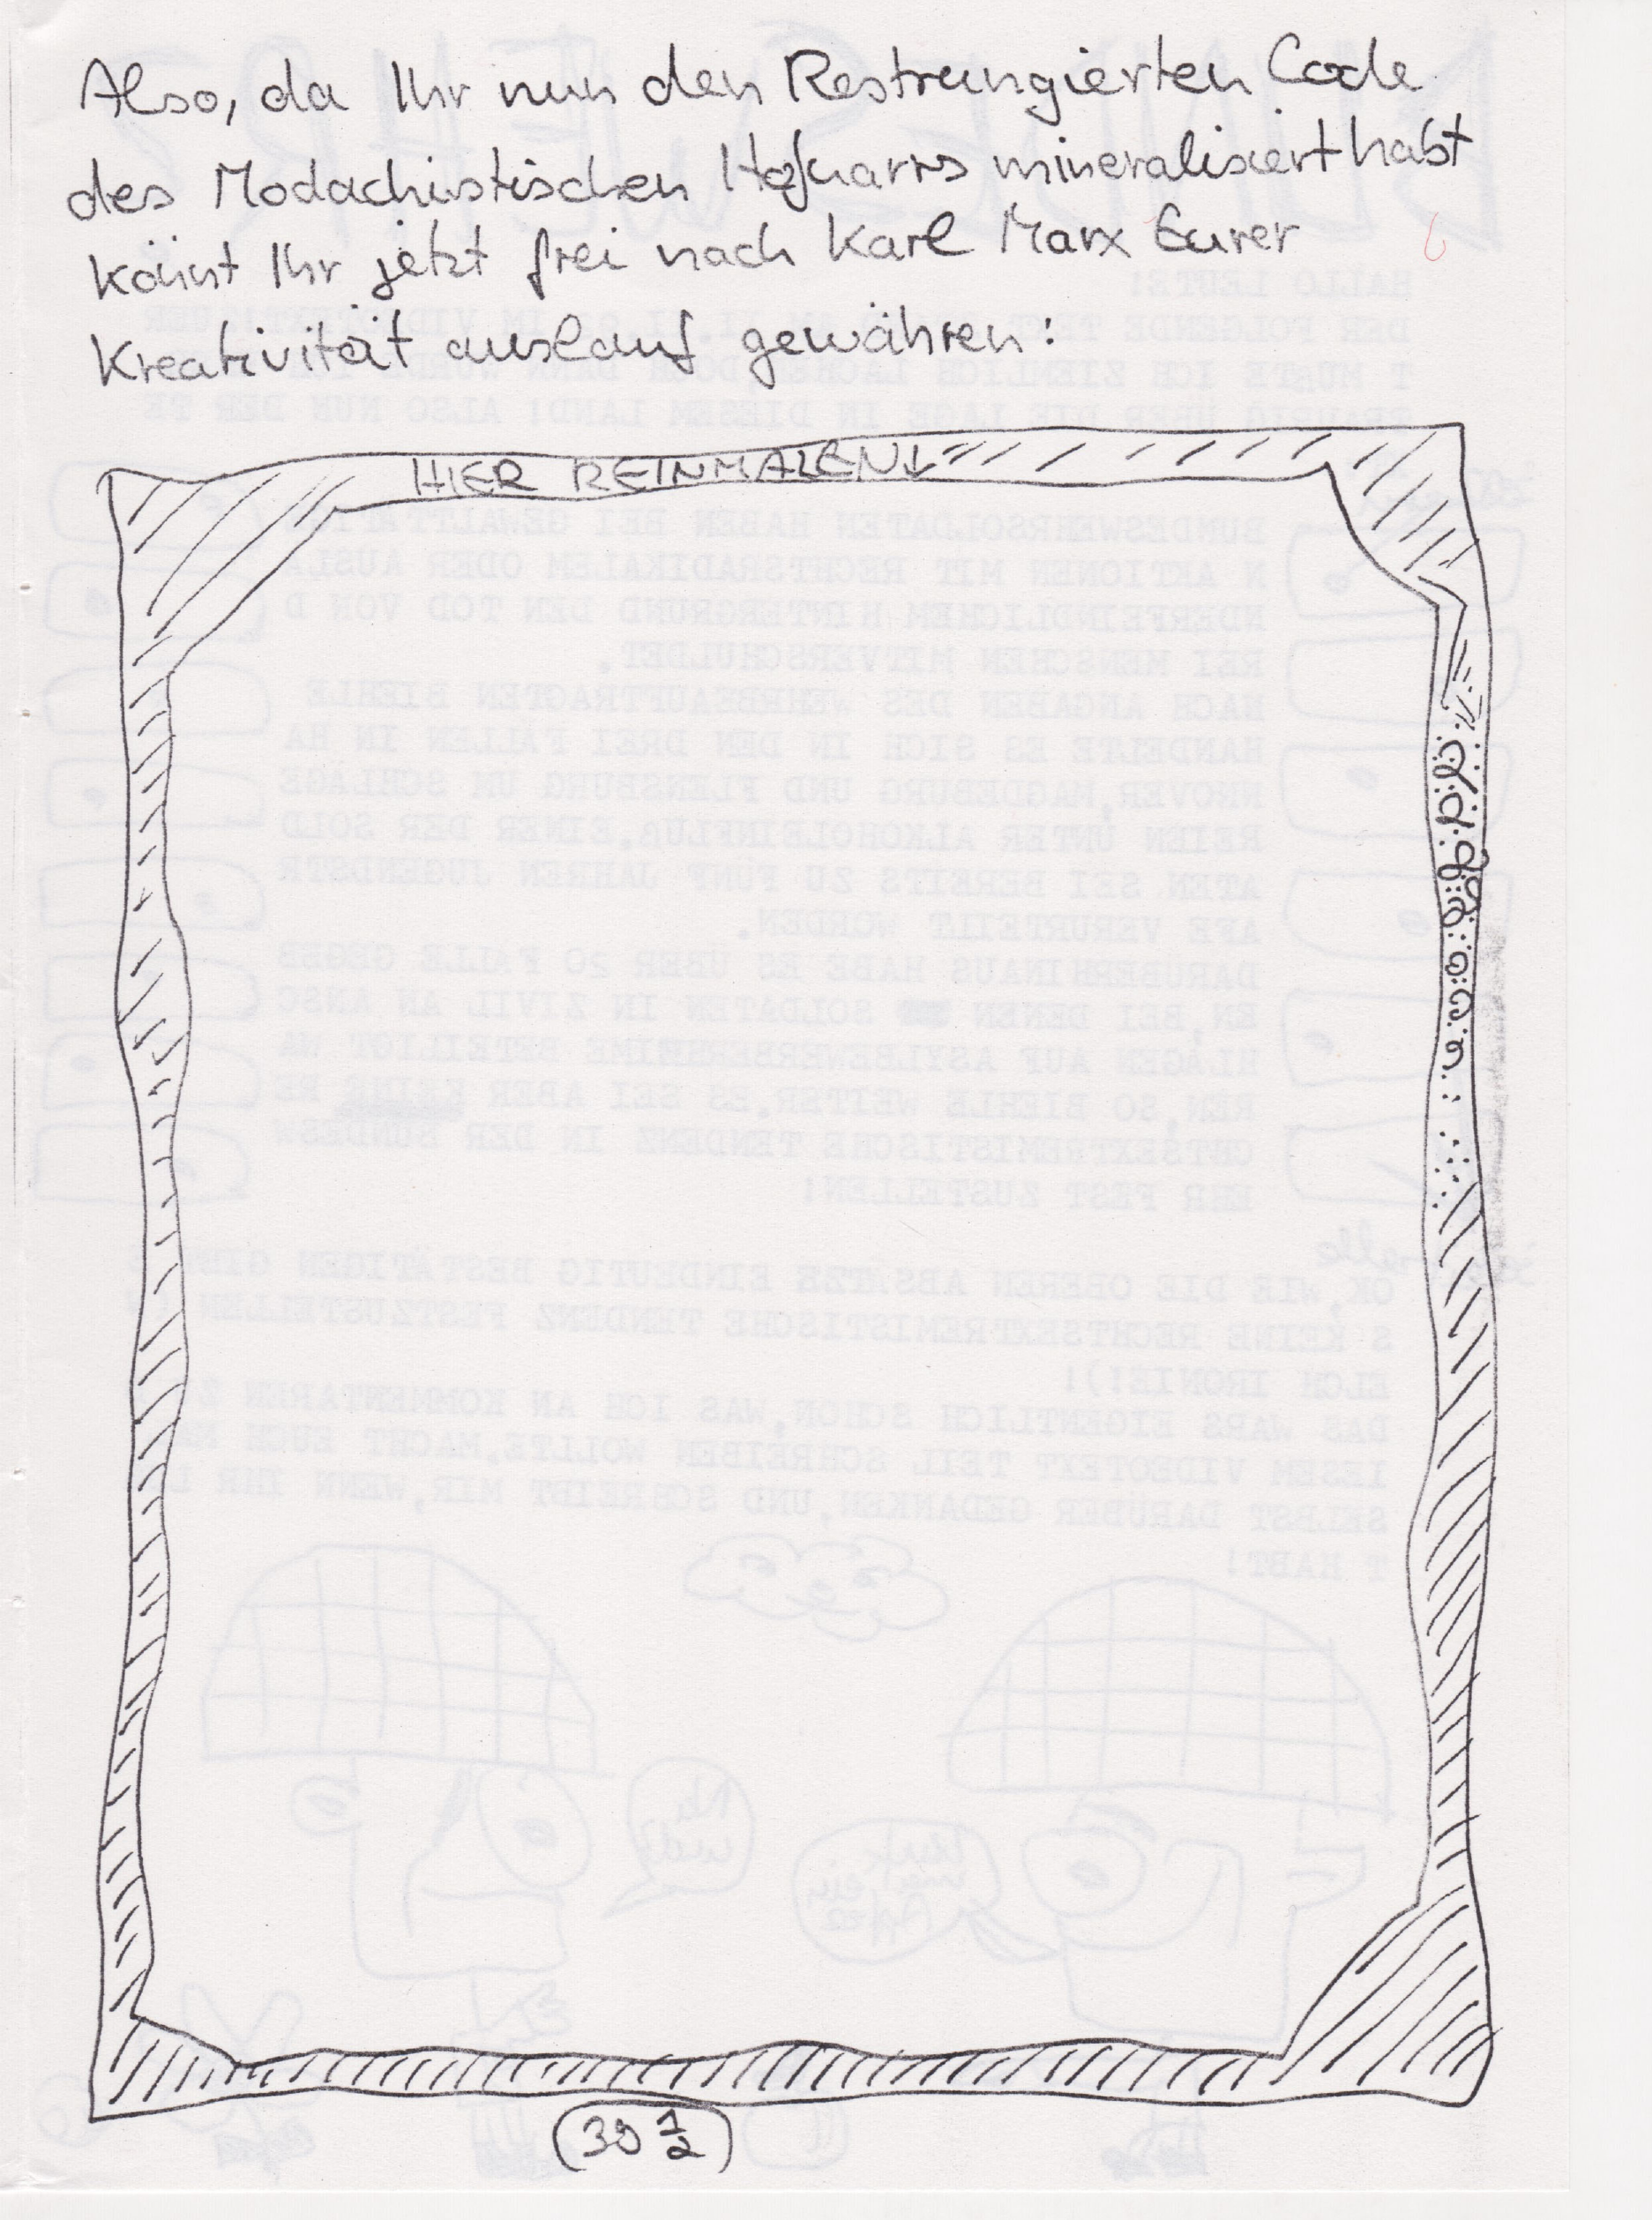 Also, da Ihr nun den Restrungierten Code
des Modachistischen Hofnarrs mineralisiert habt
könnt Ihr jetzt frei nach Karl Marx Eurer
Kreativität auslauf gewähren:
HIER REINMALEN↓
½